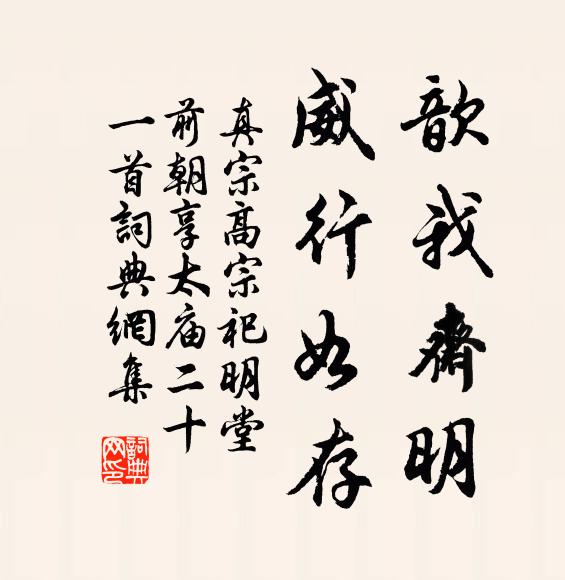 歆我齋明
威行如存
真宗高宗祀明堂
前朝享太庙二十
一首詞典網集
詞典
网印